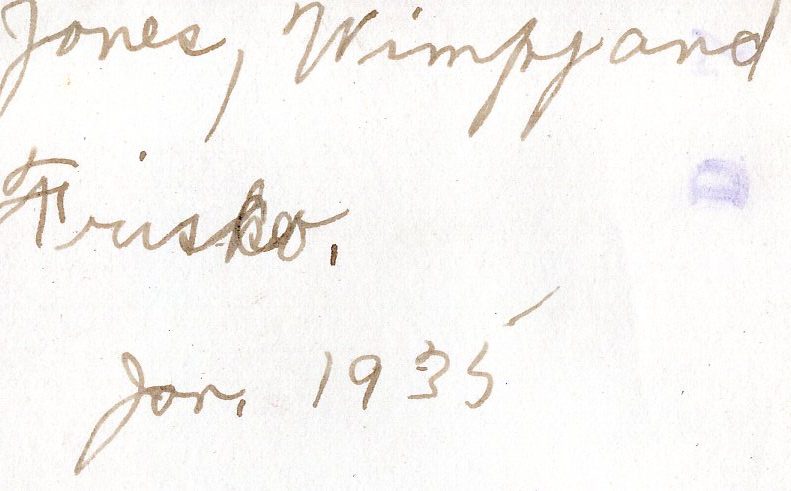 Jones, Wimpy and
Frisko.
Jan. 1935